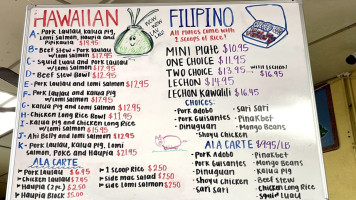 HAWAIIAN
A- Pork Laulau, Kalua Pig,
Lomi Salmon, Haupia and
Pipikaula $19.95
B- Beef Stew - Pork Laulau
w/Lomi Salmon $17.95
C- Squid Luau and Pork Laulau
w/Lomi Salmon
D- Beef Stew Bowl $12.95
E- Pork Laulau and Lomi Salmon $12.95
F- Pork Laulau and Kalua Pig
w/Lomi Salmon
G- Kalua Pig and Lomi Salmon $12.95
H- Chicken Long Rice Bowl $11.95
I- Kalua Pig and Chicken Long Rice
w/Lomi Salmon $15.95
J- Ahi Belly and Lomi Salmon
K- Pork Laulau, Kalua Pig, Lomi
Salmon, Poke and Haupia $21.95
ALA CARTE
Pork Laulau $6.95
Chicken Laulau $7.95
Haupia (2pc) $2.50
Haupia Block $5.00
1 Scoop Rice $2.50
Side Mac Salad $2.50
Side Lomi Salmon $2.50
FILIPINO
All Plates come with
2 Scoops of Rice!
Mini Plate $10.95
One Choice $11.95
Two Choice $13.95
w/ Lechon $16.95
Lechon $14.95
Lechon Kawalili $16.95
Choices:
Pork Adobo
Pork Guisantes
Dinuguan
Shoyu Chicken
Sari Sari
Pinakbet
Mongo Beans
ALA CARTE $9.95/LB
Pork Adobo
Pork Guisantes
Dinuguan
Shoyu Chicken
Sari Sari
Pinakbet
Mongo Beans
Kalua Pig
Beef Stew
Chicken Long Rice
Squid Luau